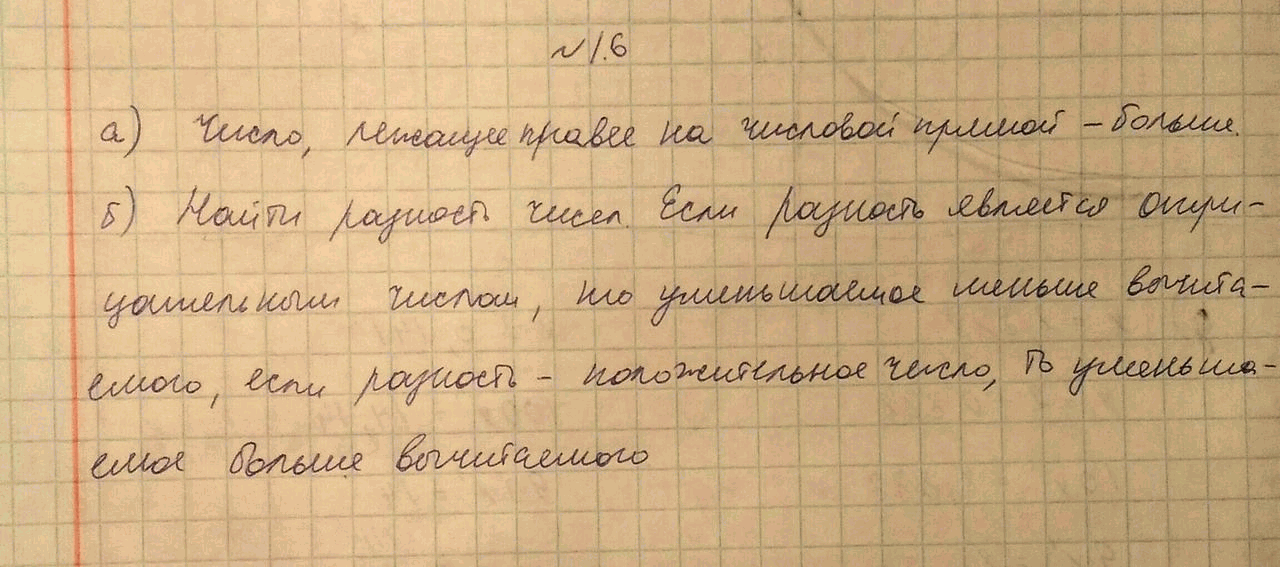 №1.6
а) Число, лежащее правее на числовой прямой - больше.
б) Найти разность чисел. Если разность является отри-
цательным числом, то уменьшаемое меньше вычита-
емого, если разность - положительное число, то уменьша-
емое больше вычитаемого